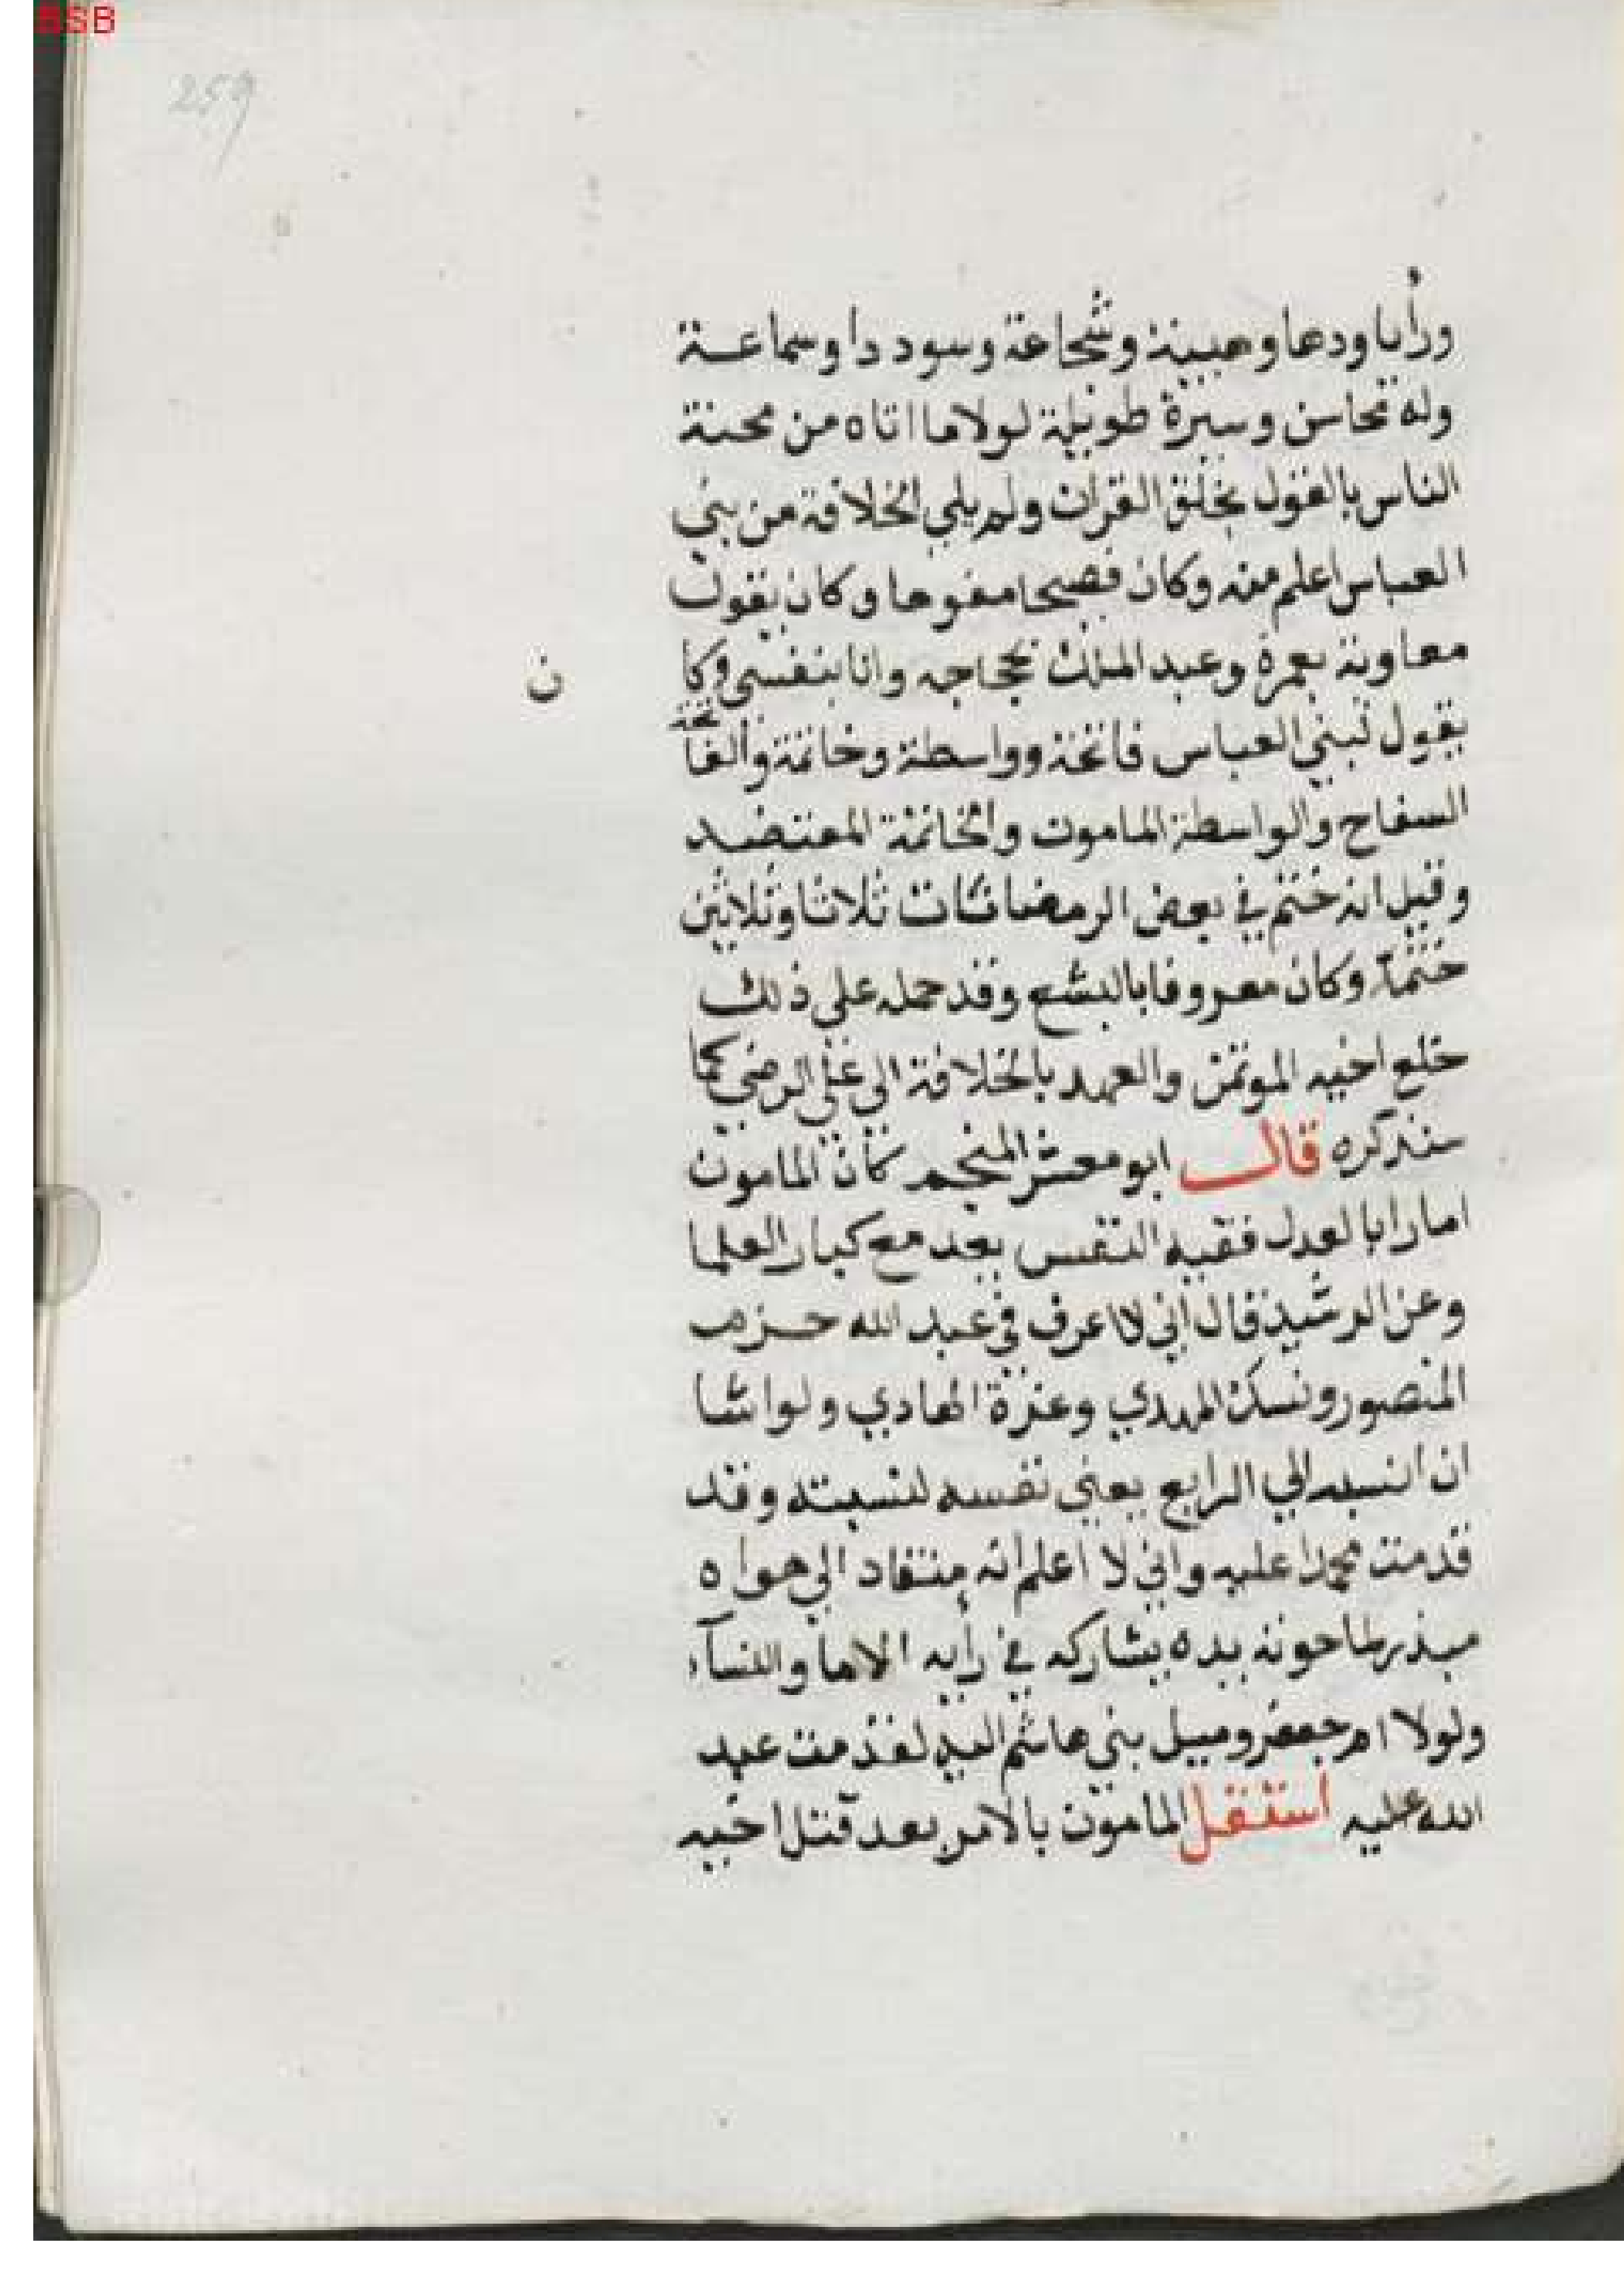 BSB
259
ورأيا ودها وهيبة وشجاعة وسوددا وسماعة
وله محاسن وسيرة طويلة لولا ما اتاه من محنة
الناس بالقول بخلق القران ولم يلي الخلافة من بني
العباس اعلم منه وكان فصيحا مفوها وكان يقول
معاوية بعمره وعبد الملك بحجاجه وانا بنفسي وكا ن
يقول لبني العباس فاتحة وواسطة وخاتمة والفاتحة
السفاح والواسطة المامون والخاتمة المعتضد
وقيل انه ختم في بعض الرمضانات ثلاثا وثلاثين
ختمة وكان معروفا بالتشيع وقد حمله على ذلك
خلع اخيه الموتمن والعهد بالخلافة الي علي الرضي كما
سنذكره قال ابو معشر المنجم كان المامون
امارا بالعدل فقيه النفس يعد مع كبار العلما
وعن الرشيد قال اني لا اعرف في عبد الله حزم
المنصور ونسك المهدي وعزة الهادي ولو اشا
ان انسبه الي الرابع يعني نفسه لنسبته وقد
قدمت محمدا عليه واني لا اعلم انه منقاد الي هواه
مبذر لما حوته يده يشاركه في رأيه الاما والنسآء
ولولا ام جعفر وميل بني هاشم اليه لقدمت عبد
الله عليه استقل المامون بالامر بعد قتل اخيه